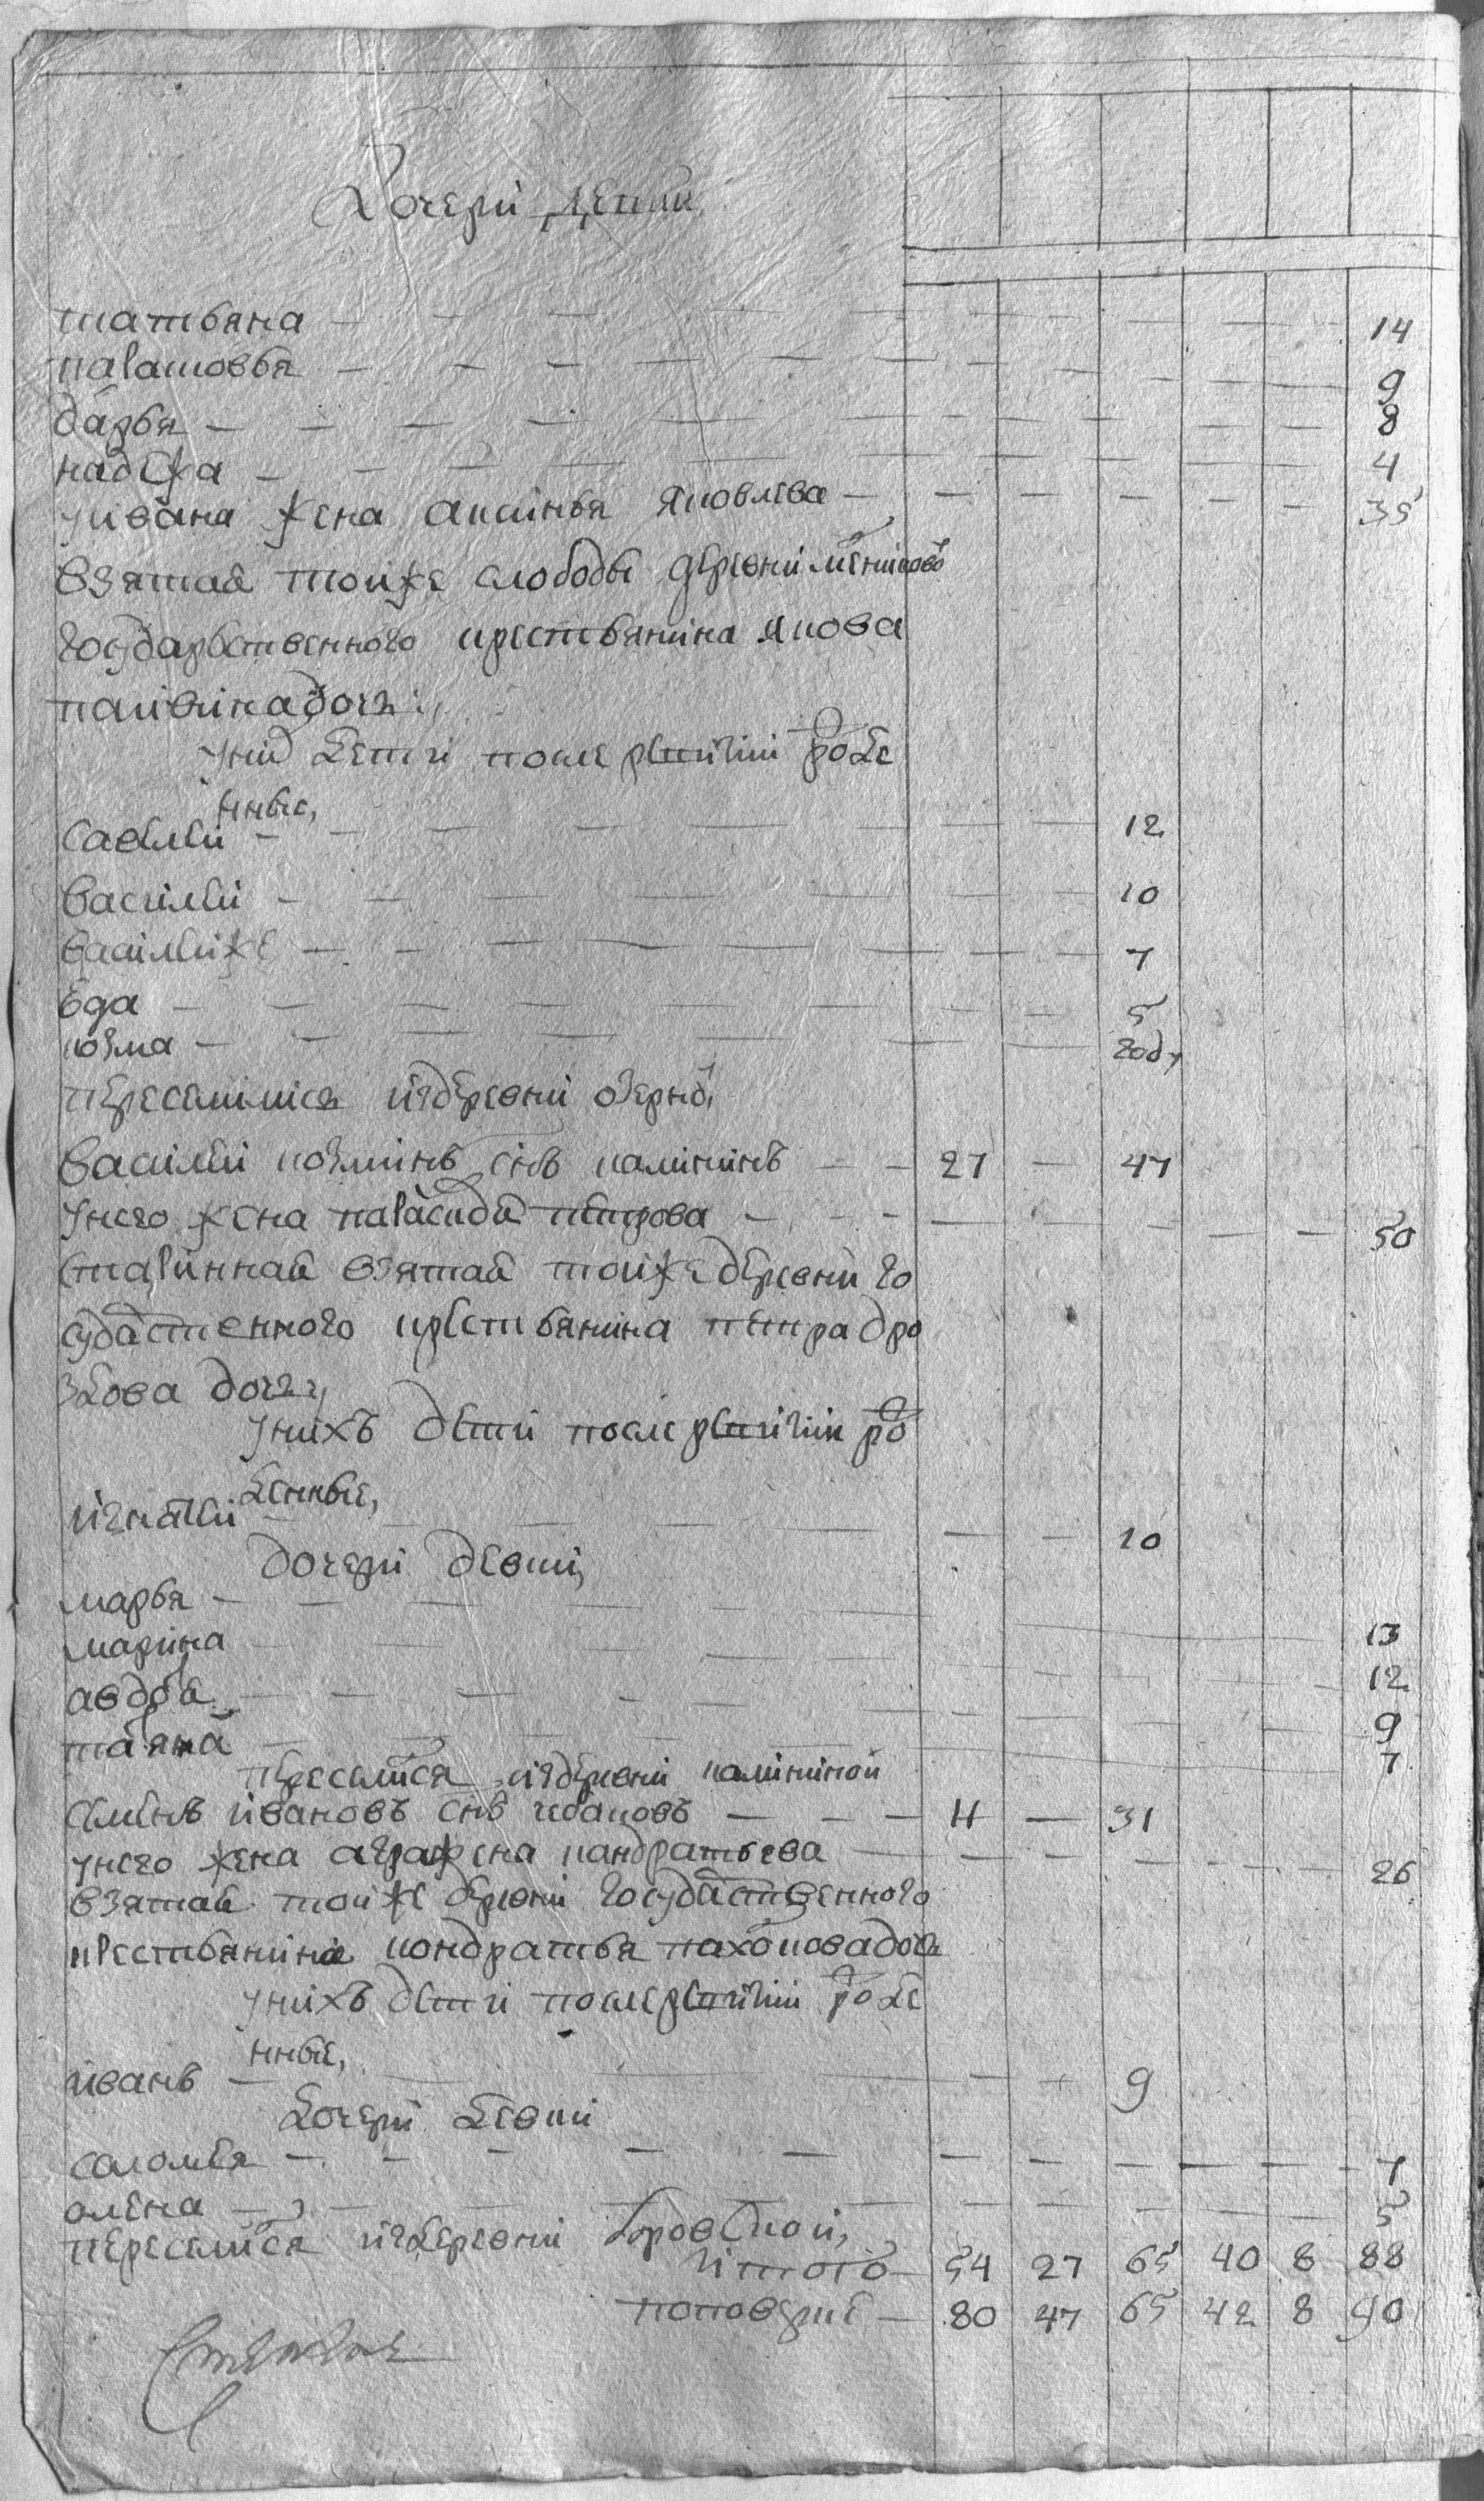 дочери девки
татьяна — 14
парасковья — 9
дарья — 8
надежа — 4
уивана жена аксинья яковлева — 35
взятая тойже слободы деревни
государственного крестьянина якова
дочь
уних дети после ревизии роже
нные,
савелей — 12
василей — 10
василейже — 7
5
козма — году
переселился издеревни озерной
василей козминъ снъ калининъ — 27 — 47
унего жена параскодья петрова — 50
старинная взятая тойже деревни го
сударственного крестьянина петра дро
здова дочь
унихъ дети после ревизии ро
жденные,
игнатей — 10
дочери девки
марья — 13
марина — 12
авдотья — 9
татьяна — 7
переселился издеревни калининой
семенъ ивановъ снъ чебаковъ — 11 — 31
унего жена аграфена кандратьева — 26
взятая тойже деревни государственного
крестьянина кондратья пахомовадочь
унихъ дети после ревизии роже
нные,
иванъ — 9
дочери девки
саломея — 7
олена — 5
переселился издеревни боровской,
итого — 54 27 65 40 8 88
80 47 65 42 8 90